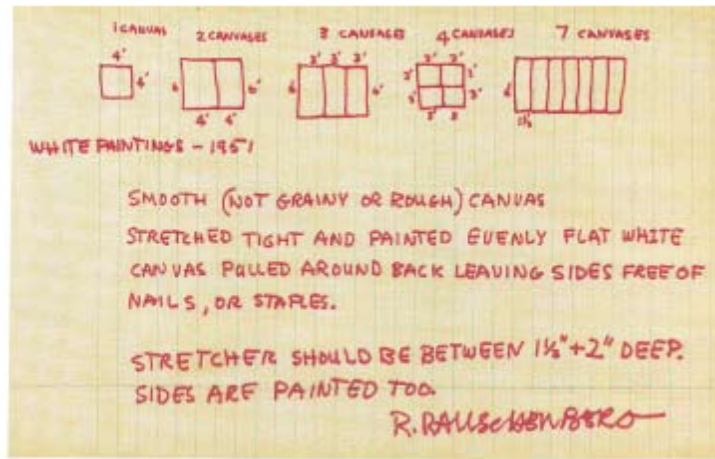 1 CANVAS 2 CANVASES 3 CANVASES 4 CANVASES 7 CANVASES
4' 3' 3' 3' 3' 3'
4' 6 6' 6' 6' 3' 3' 3' 3' 6'
4' 4' 3' 3
WHITE PAINTINGS - 1951
SMOOTH (NOT GRAINY OR ROUGH) CANVAS
STRETCHED TIGHT AND PAINTED EVENLY FLAT WHITE
CANVAS PULLED AROUND BACK LEAVING SIDES FREE OF
NAILS, OR STAPLES.
STRETCHER SHOULD BE BETWEEN 1½" + 2" DEEP.
SIDES ARE PAINTED TOO.
R. RAUSCHENBERG